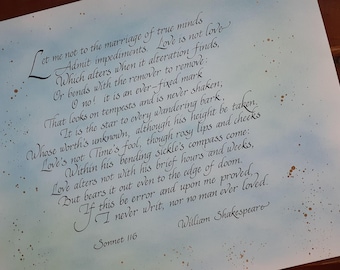 Let me not to the marriage of true minds
Admit impediments. Love is not love
Which alters when it alteration finds,
Or bends with the remover to remove:
O no! it is an ever-fixed mark
That looks on tempests and is never shaken;
It is the star to every wandering bark,
Whose worth's unknown, although his height be taken.
Love's not Time's fool, though rosy lips and cheeks
Within his bending sickle's compass come:
Love alters not with his brief hours and weeks,
But bears it out even to the edge of doom.
If this be error and upon me proved,
I never writ, nor no man ever loved.
Sonnet 116
William Shakespeare